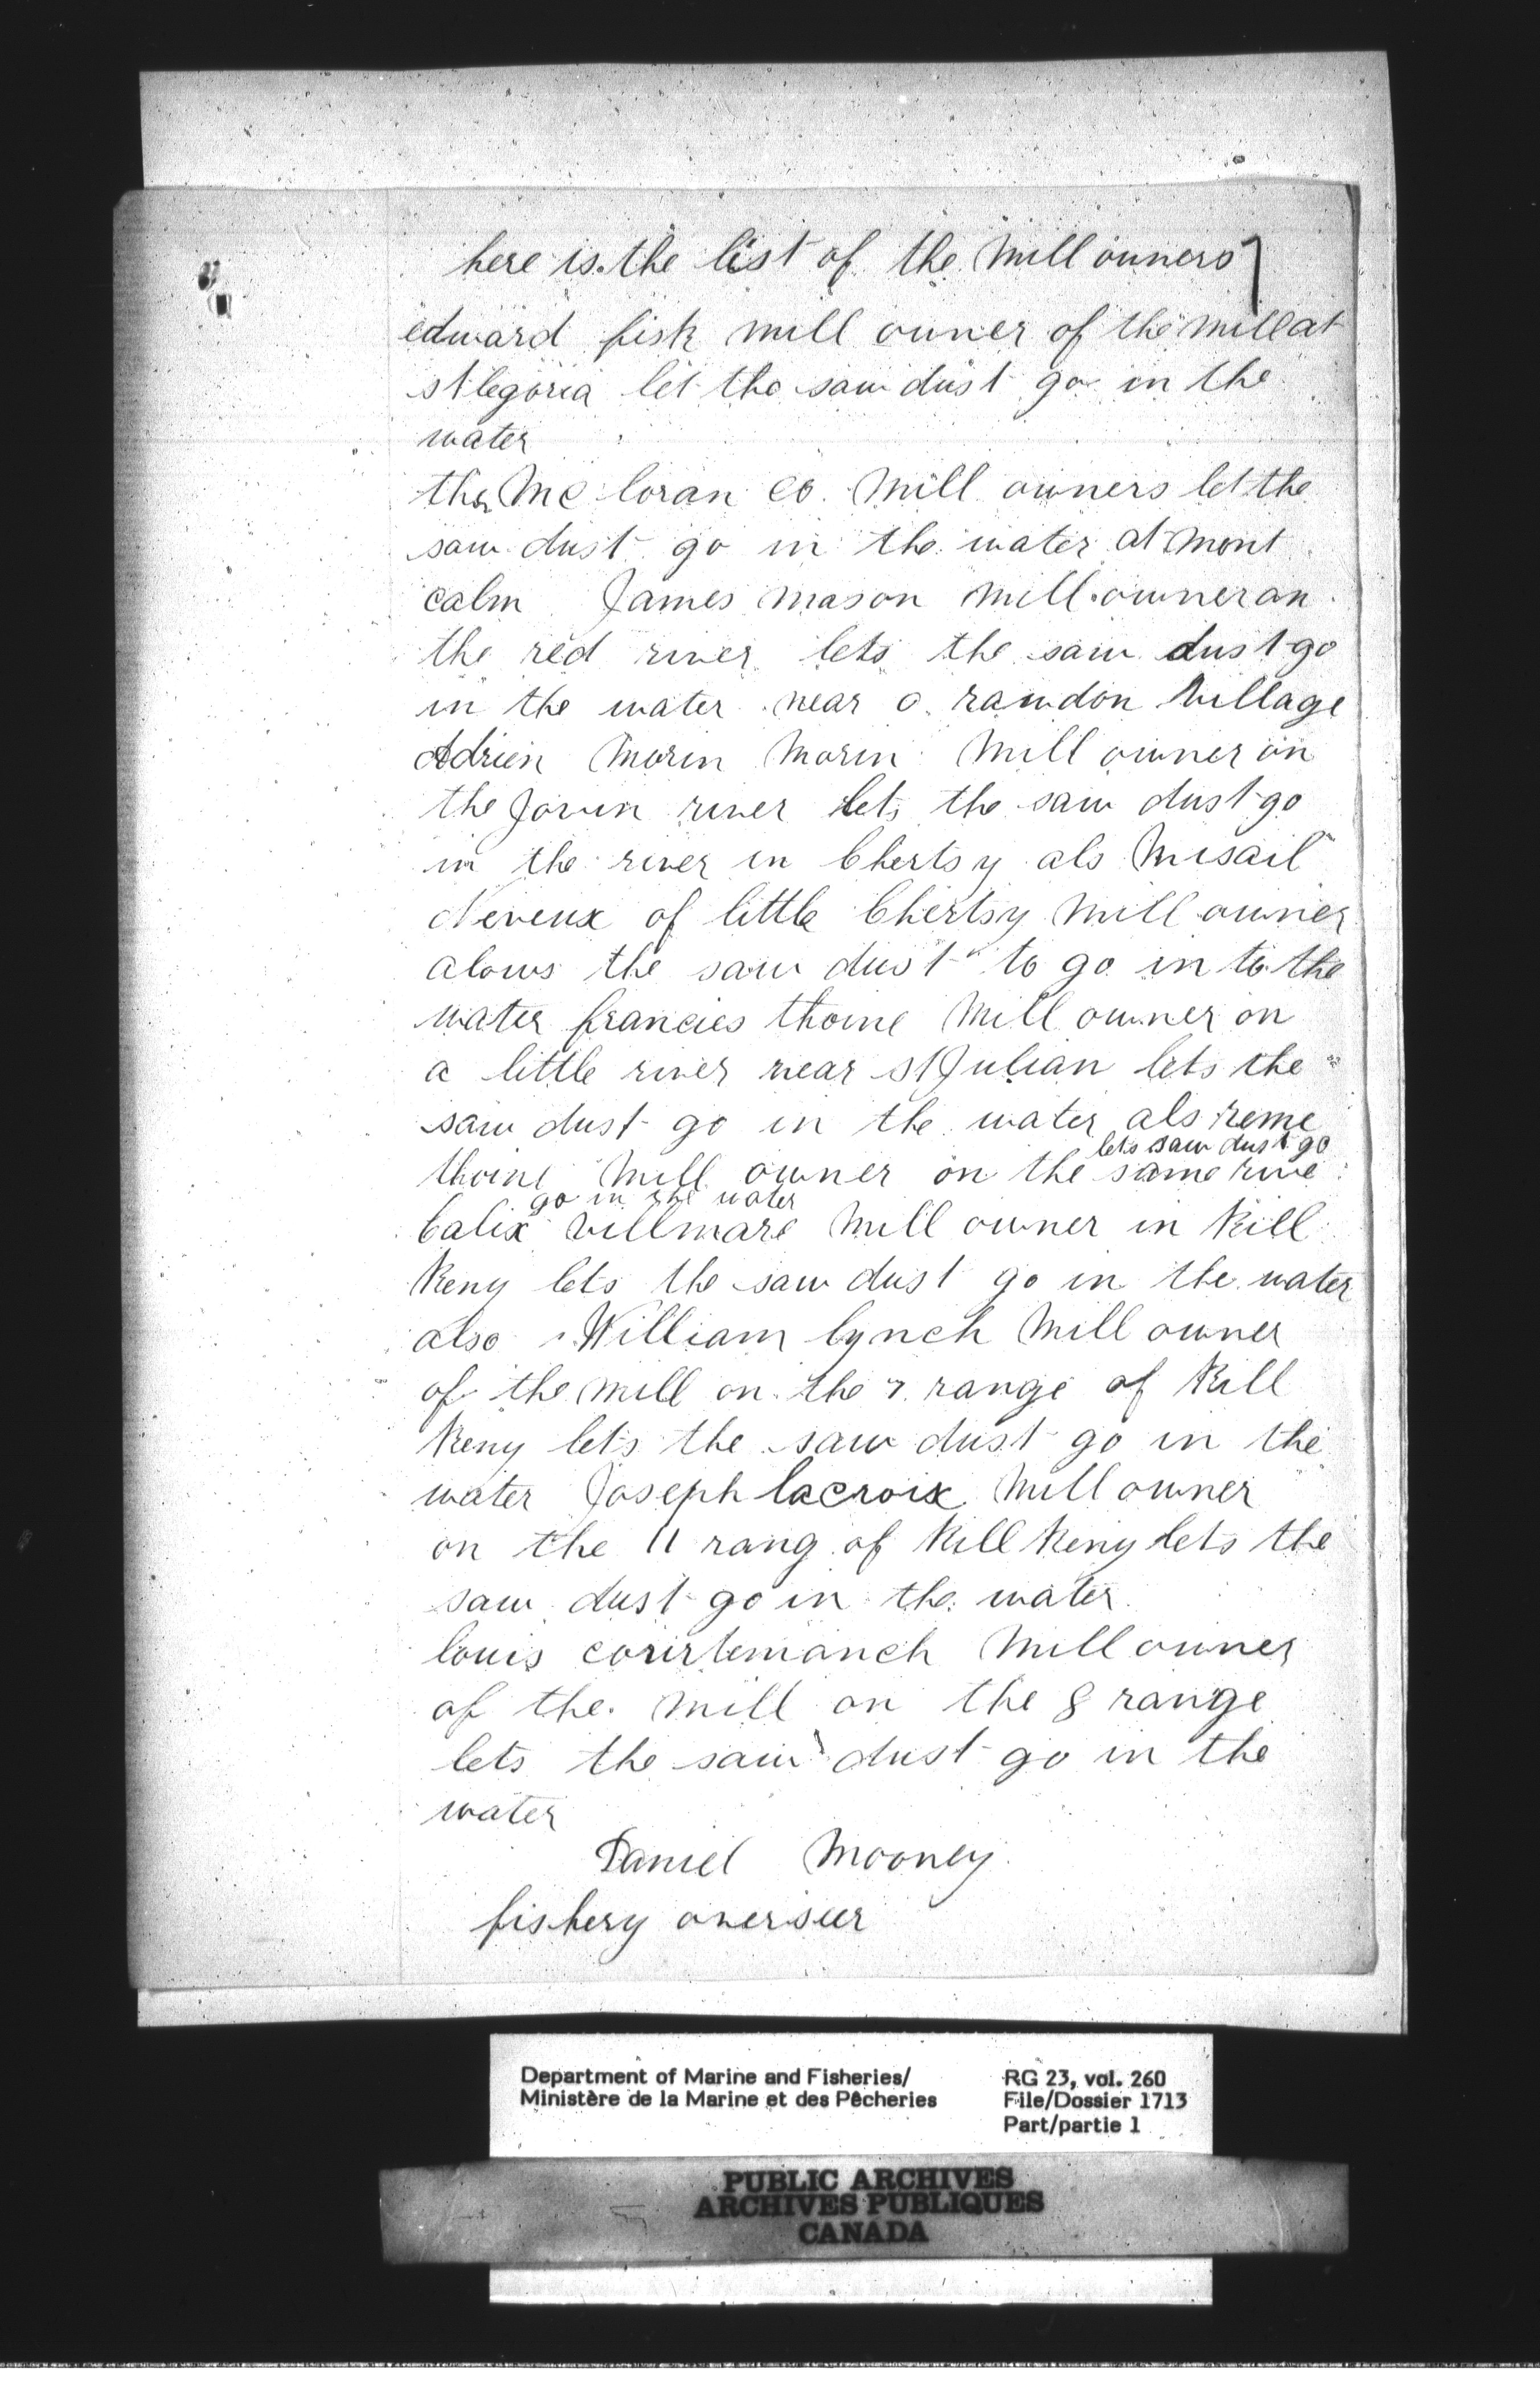 here is the list of the Mill owners
edward fisk mill owner of the mill at
st legoria let the saw dust go in the
water
the Mc loran co. Mill owners let the
saw dust go in the water at mont
calm James Mason Mill owner on
the red river lets the saw dust go
in the water near o. rawdon Village
Adrien Morin Morin Mill owner on
the Jovin river lets the saw dust go
in the river in Chertsy als Misail
Neveux of little Chertsy Mill owner
alows the saw dust to go in to the
water francies thoine Mill owner on
a little river near St Julian lets the
saw dust go in the water als reme
lets saw dust go
thoine Mill owner on the same rive
go in the water
Calix villmare Mill owner in Kill
Keny lets the saw dust go in the water
also William lynch Mill owner
of the mill on the 7 range of Kill
Keny lets the saw dust go in the
water Joseph lacroix Mill owner
on the 11 rang of Kill Keny lets the
saw dust go in the water
louis courtemanch Mill owner
of the Mill on the 8 range
lets the saw dust go in the
water
Daniel Mooney
fishery overseer
Department of Marine and Fisheries/
Ministère de la Marine et des Pêcheries
RG 23, vol. 260
File/Dossier 1713
Part/partie 1
PUBLIC ARCHIVES
ARCHIVES PUBLIQUES
CANADA